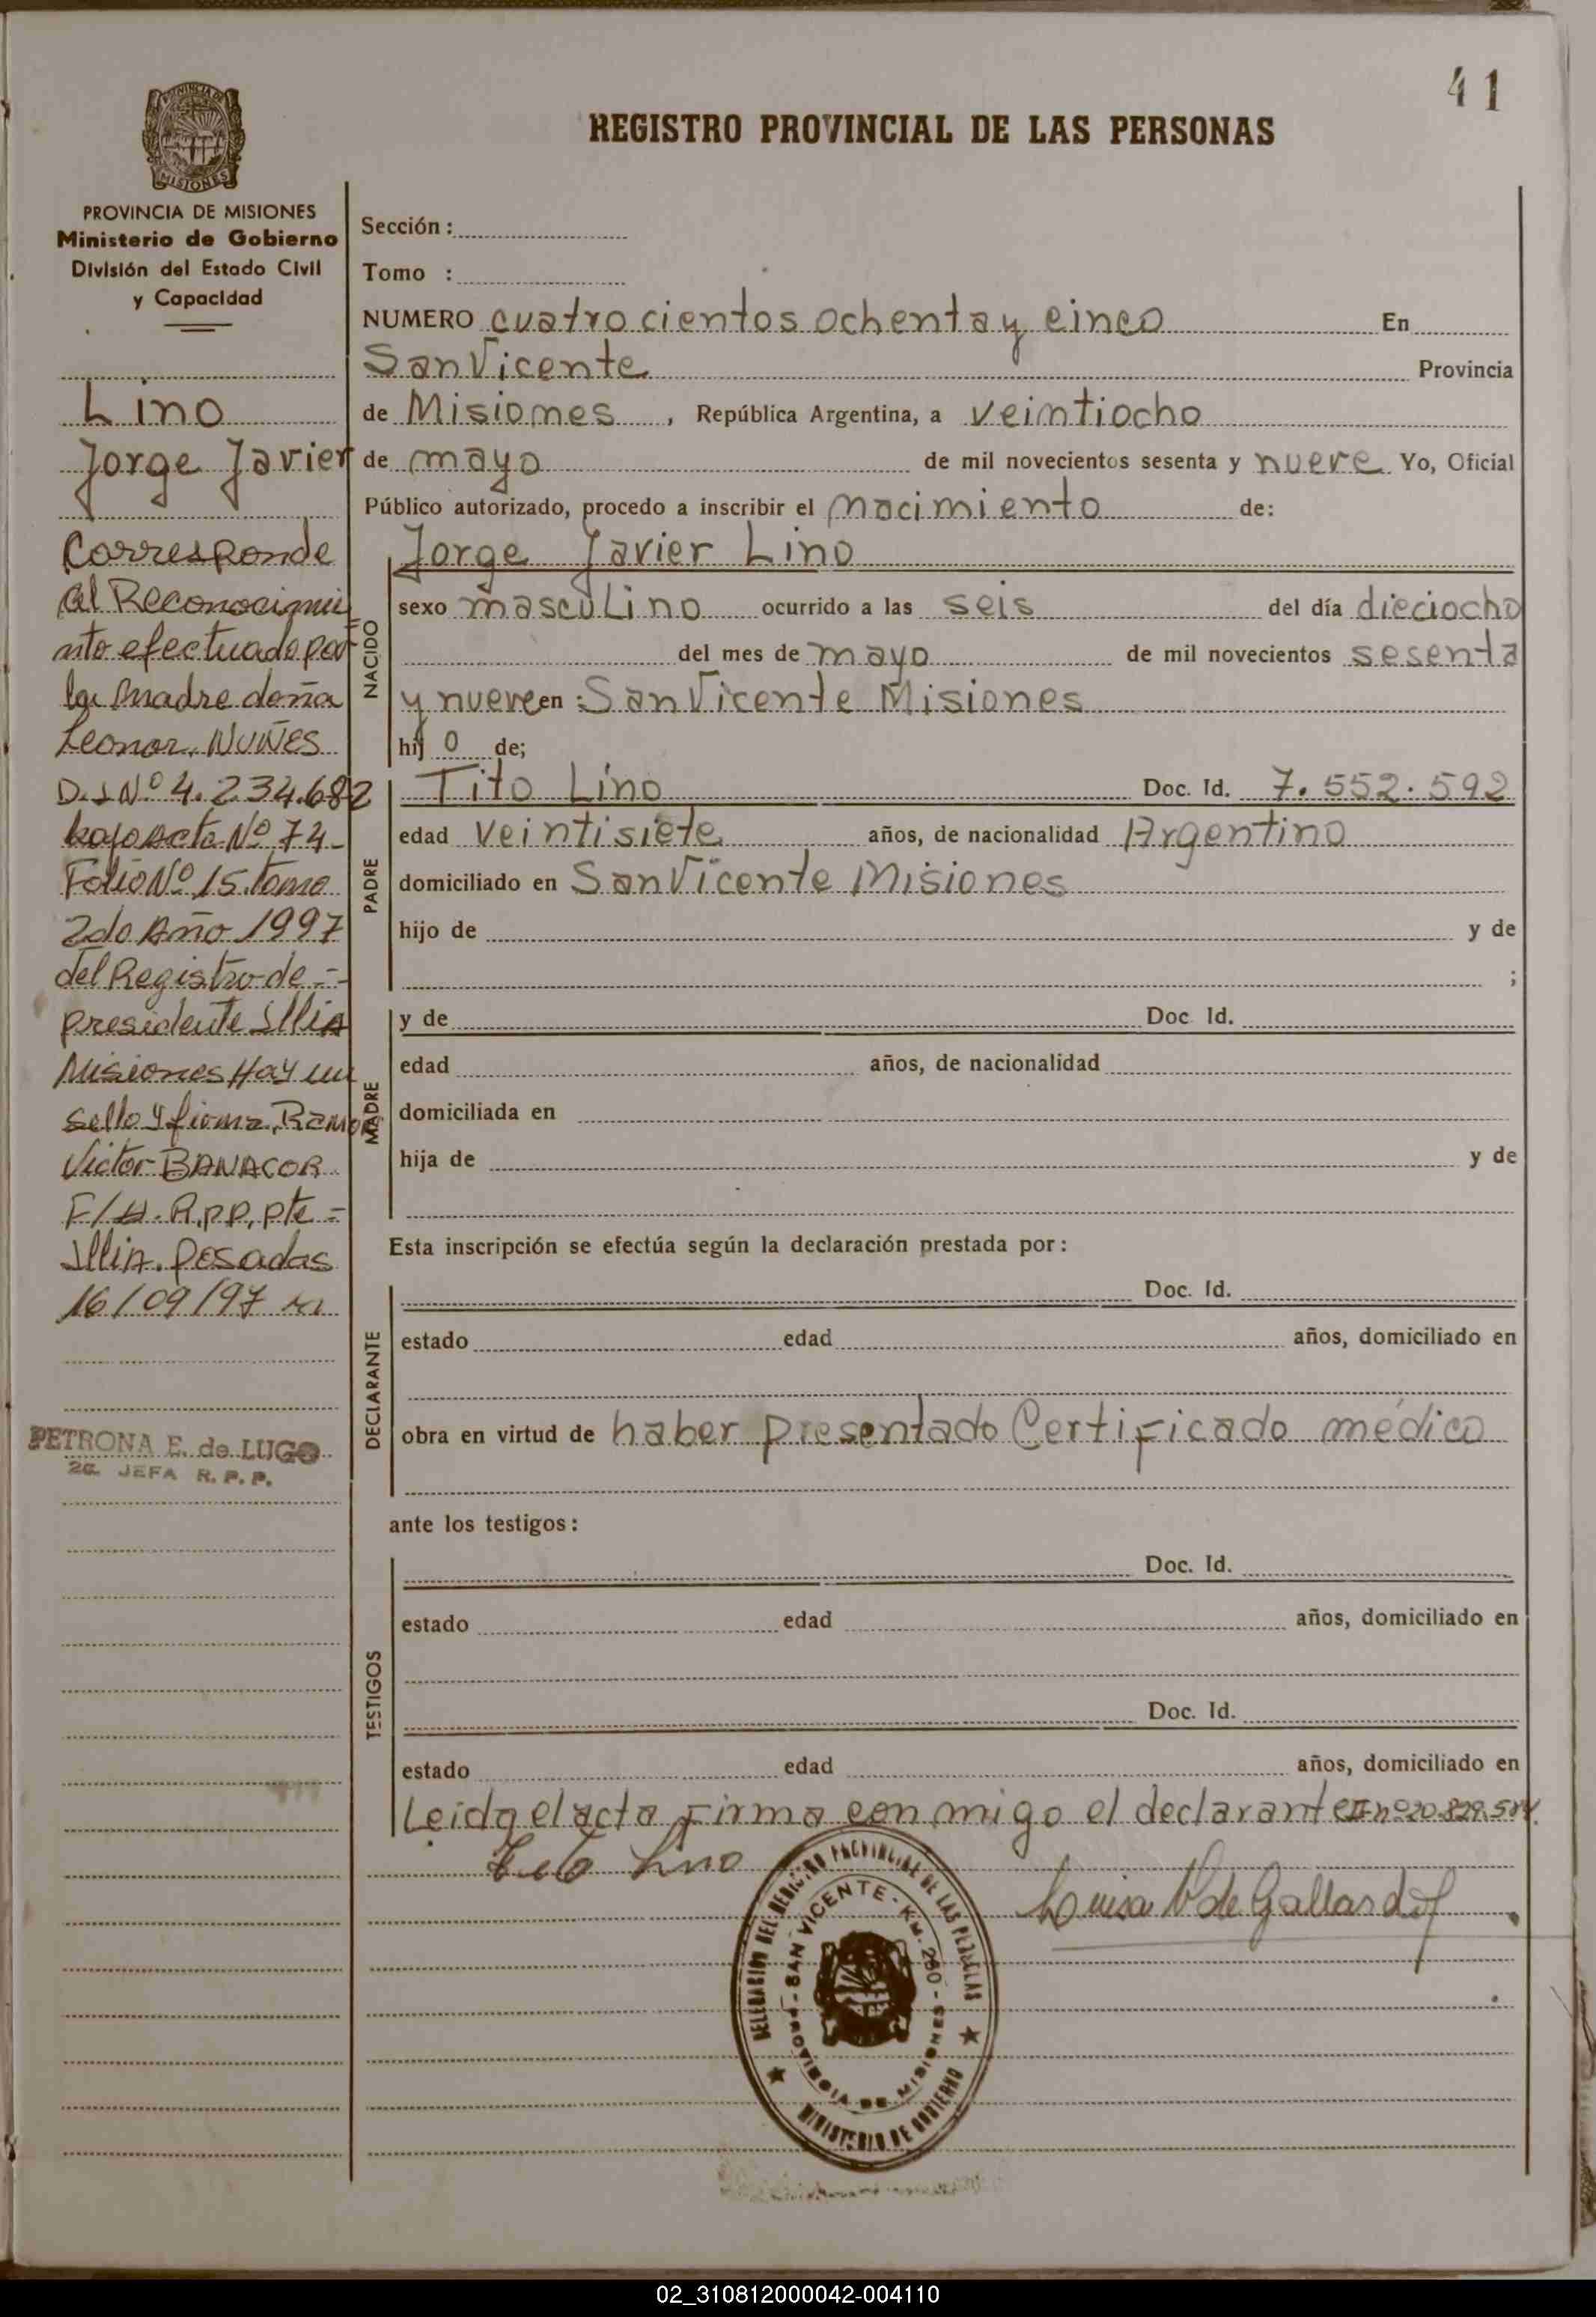 41
REGISTRO PROVINCIAL DE LAS PERSONAS
MISIONES
PROVINCIA DE MISIONES
Ministerio de Gobierno
División del Estado Civil
y Capacidad
Lino
Jorge Javier
Corresponde
al Reconocimie
nto efectuado por
la madre doña
Leonor. NUÑES
D.I Nº 4.234.682
bajo acta Nº 74-
Folio Nº 15. tomo
2do Año 1997
del Registro de.=-
presidente Illia
Misiones Hay un
sello y firma, Ramon
Victor BANACOR
F/A. R.pp, pte =
Illia. Posadas
16/09/97
PETRONA E. de LUGO
2a. JEFA R. P. P.
Sección :
Tomo :
NUMERO cuatrocientos ochenta y cinco En
San Vicente Provincia
de Misiones , República Argentina, a veintiocho
de mayo de mil novecientos sesenta y nueve Yo, Oficial
Público autorizado, procedo a inscribir el nacimiento de:
Jorge Javier Lino
NACIDO
sexo mascuLino ocurrido a las seis del día dieciocho
del mes de mayo de mil novecientos sesenta
y nueve en : San Vicente Misiones
hij o de;
PADRE
Tito Lino Doc. Id. 7.552.592
edad veintisiete años, de nacionalidad Argentino
domiciliado en San Vicente Misiones
hijo de y de
;
MADRE
y de Doc Id.
edad años, de nacionalidad
domiciliada en
hija de y de
Esta inscripción se efectúa según la declaración prestada por :
DECLARANTE
Doc. Id.
estado edad años, domiciliado en
obra en virtud de haber presentado Certificado médico
ante los testigos :
TESTIGOS
Doc. Id.
estado edad años, domiciliado en
Doc. Id.
estado edad años, domiciliado en
Leida el acta Firma conmigo el declarante
Tito Lino
Luisa V de Gallardo
DELEGACION DEL REGISTRO PROVINCIAL DE LAS PERSONAS
SAN VICENTE - KM. 260 - MISIONES
PROVINCIA DE MISIONES
MINISTERIO DE GOBIERNO
02_310812000042-004110